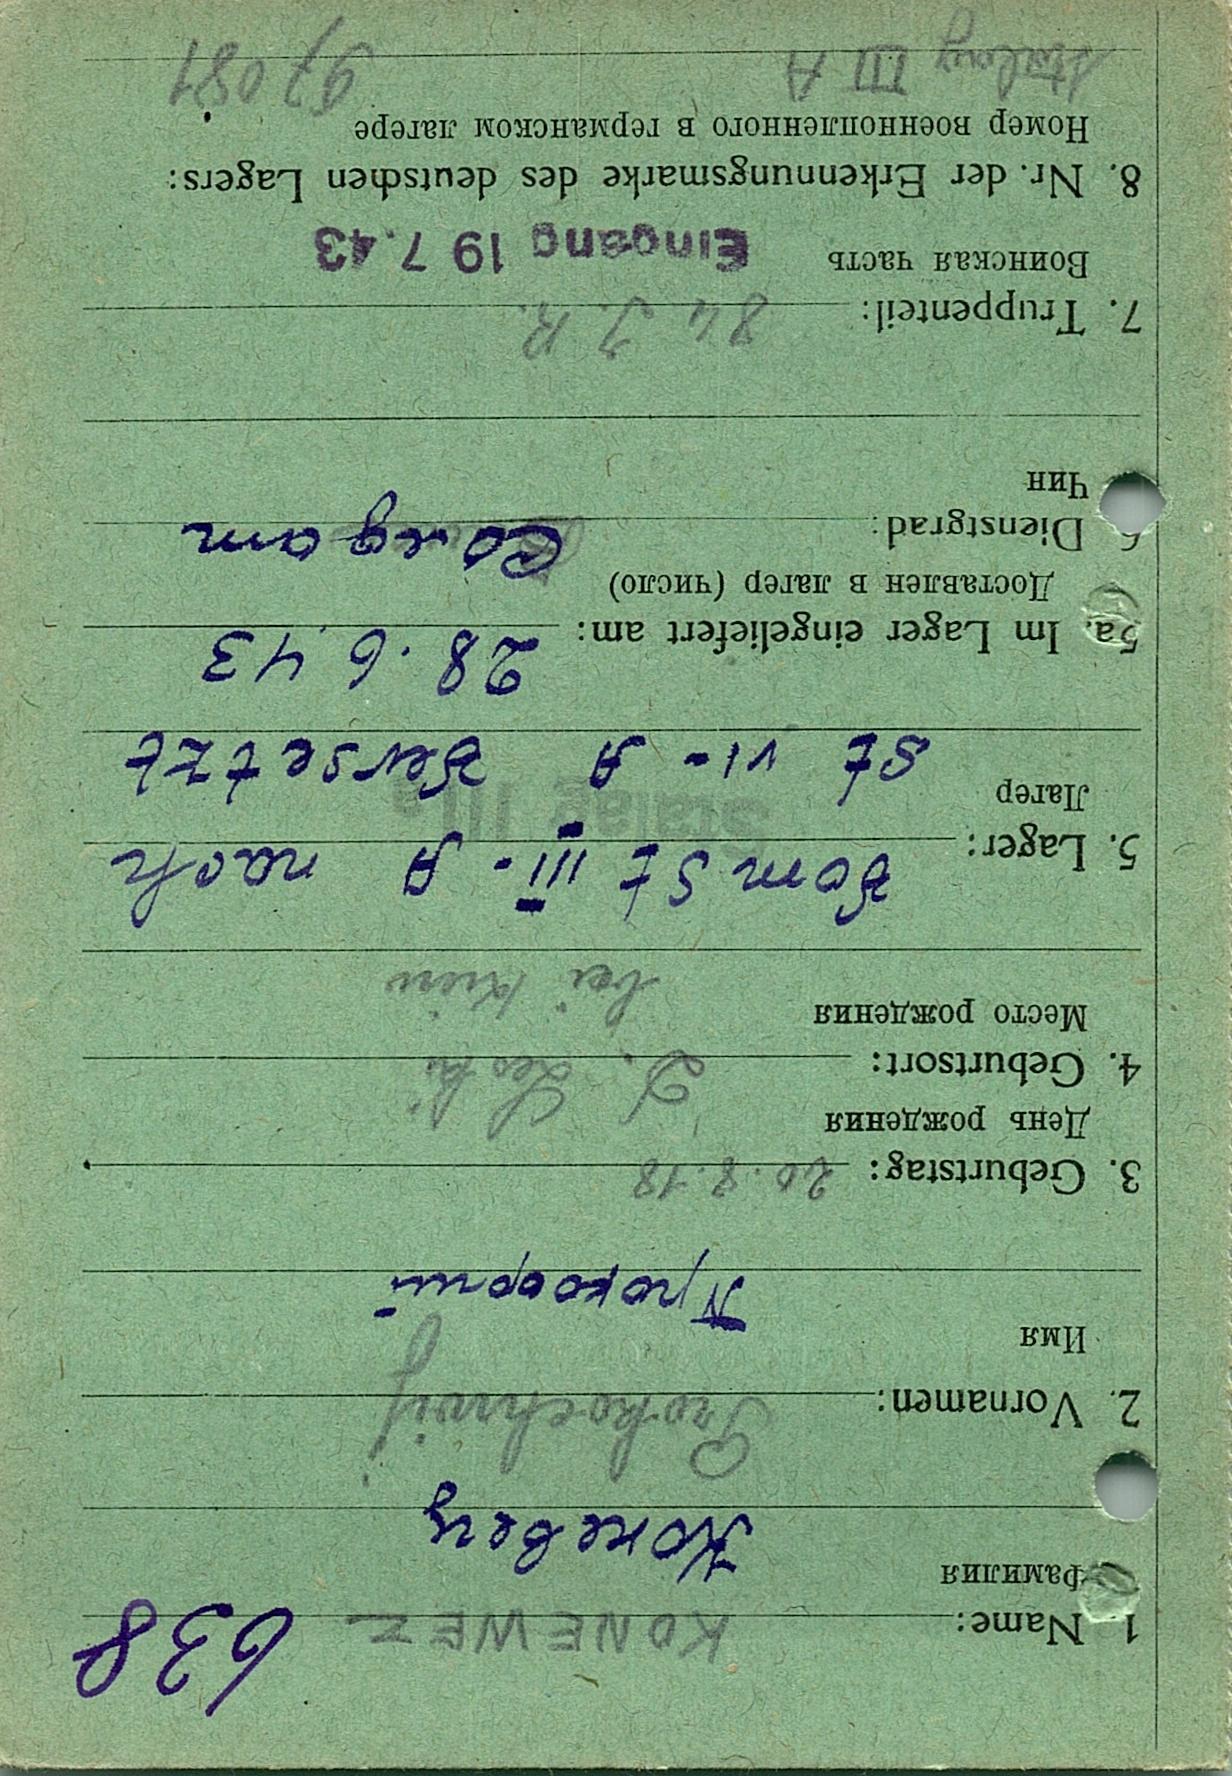 638
1. Name: KONEWEZ
Фамилия
Коневец
2. Vornamen: Prokochwij
Имя
Прокофий
3. Geburtstag: 20.8.18
День рождения
4. Geburtsort:
Место рождения
bei Kiew
5. Lager: Vom St III-A nach
Лагер
Stalag IIIa
St VI-A Versetzt
5a. Im Lager eingeliefert am: 28.6.43
Доставлен в лагер (число)
6. Dienstgrad: Солдат
Чин
7. Truppenteil: 84 J. R.
Воинская часть
Eingang 19 7.43
8. Nr. der Erkennungsmarke des deutschen Lagers:
Номер военнопленного в германском лагере
Stalag III A 97081